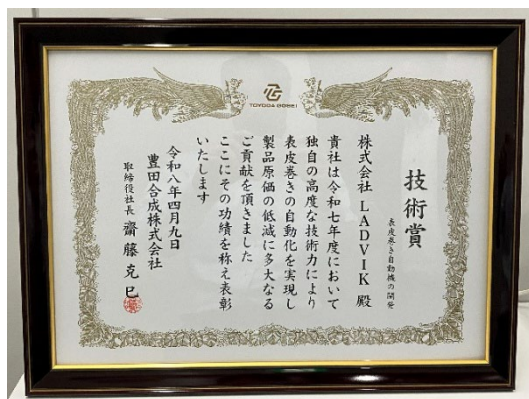 TOYODA GOSEI
技術賞
表皮巻き自動機の開発
株式会社 LADVIK 殿
貴社は令和七年度において
独自の高度な技術力により
表皮巻きの自動化を実現し
製品原価の低減に多大なる
ご貢献を頂きました
ここにその功績を称え表彰
いたします
令和八年四月九日
豊田合成株式会社
取締役社長 齋藤克巳